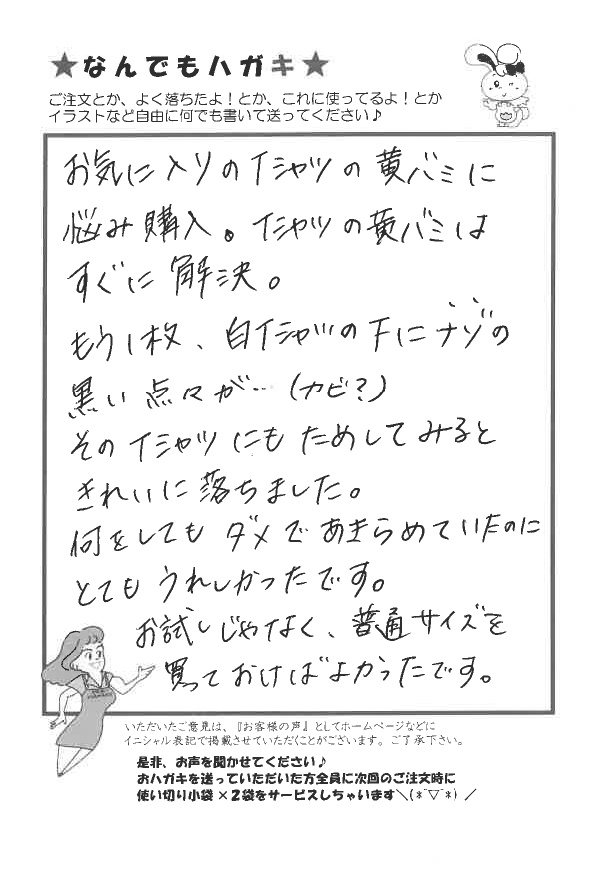 ★なんでもハガキ★
ご注文とか、よく落ちたよ！とか、これに使ってるよ！とか
イラストなど自由に何でも書いて送ってください♪
お気に入りのTシャツの黄バミに
悩み購入。Tシャツの黄バミは
すぐに解決。
もう1枚、白Tシャツの下にナゾの
黒い点々が…（カビ？）
そのTシャツにもためしてみると
きれいに落ちました。
何をしてもダメであきらめていたのに
とてもうれしかったです。
お試しじゃなく、普通サイズを
買っておけばよかったです。
いただいたご意見は、『お客様の声』としてホームページなどに
イニシャル表記で掲載させていただくことがございます。ご了承下さい。
是非、お声を聞かせてください♪
おハガキを送っていただいた方全員に次回のご注文時に
使い切り小袋×2袋をサービスしちゃいます＼(*¯▽¯*)／